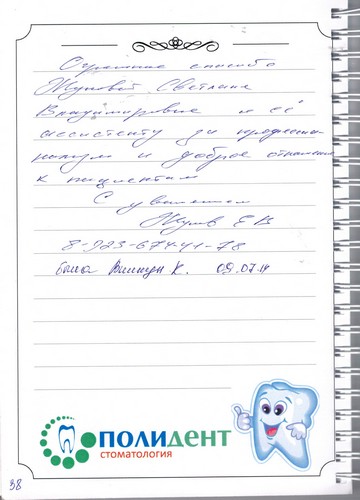 Огромное спасибо
Жуковой Светлане
Владимировне и её
ассистенту за професси-
нализм и доброе отношение
к пациентам
С уважением
Е В
8-923-674-41-78
была К. 09.07.14
ПОЛИДЕНТ
СТОМАТОЛОГИЯ
38